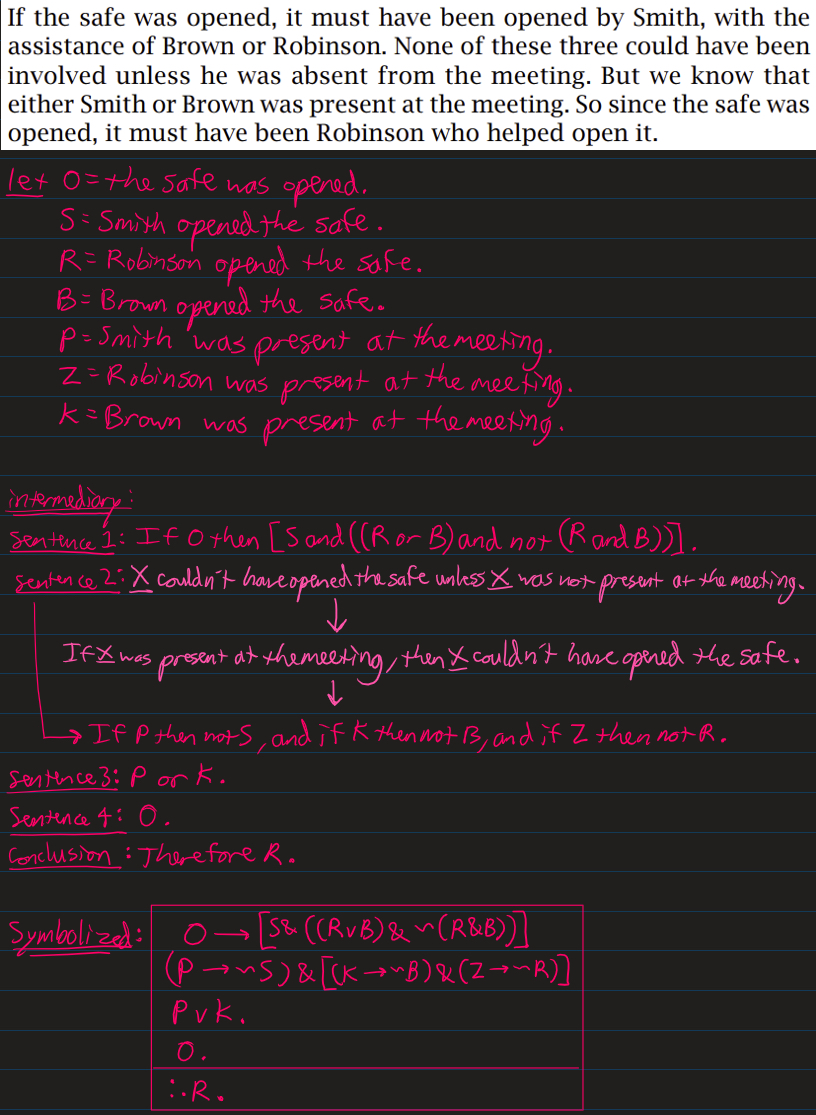 If the safe was opened, it must have been opened by Smith, with the
assistance of Brown or Robinson. None of these three could have been
involved unless he was absent from the meeting. But we know that
either Smith or Brown was present at the meeting. So since the safe was
opened, it must have been Robinson who helped open it.
let O = the safe was opened.
S = Smith opened the safe.
R = Robinson opened the safe.
B = Brown opened the safe.
P = Smith was present at the meeting.
Z = Robinson was present at the meeting.
K = Brown was present at the meeting.
intermediary:
Sentence 1: If O then [S and ((R or B) and not (R and B))].
Sentence 2: X couldn't have opened the safe unless X was not present at the meeting.
↓
If X was present at the meeting, then X couldn't have opened the safe.
↓
→ If P then not S, and if K then not B, and if Z then not R.
Sentence 3: P or K.
Sentence 4: O.
Conclusion: Therefore R.
Symbolized: O → [S & ((R ∨ B) & ~(R & B))]
(P → ~S) & [(K → ~B) & (Z → ~R)]
P ∨ K.
O.
∴ R.